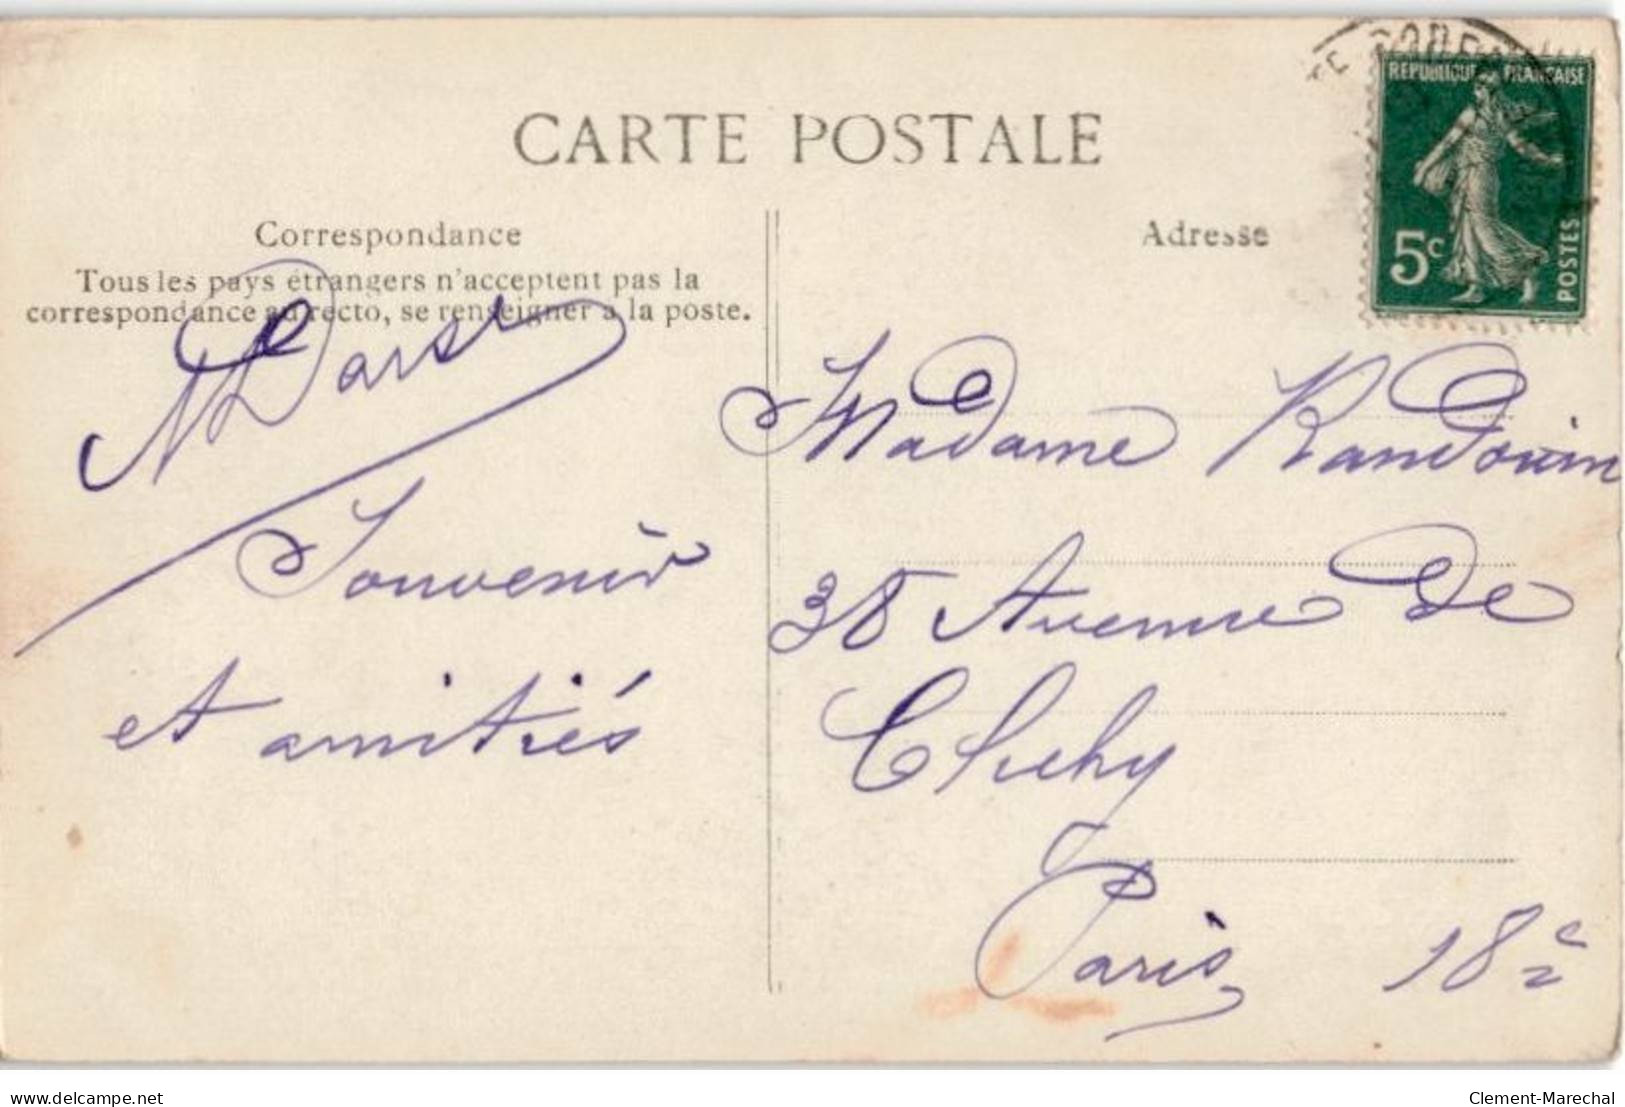 CARTE POSTALE
Correspondance
Tous les pays étrangers n'acceptent pas la
correspondance au recto, se renseigner à la poste.
Souvenir
et amitiés
Adresse
REPUBLIQUE FRANÇAISE
5c
POSTES
Madame Randouin
38 Avenue de
Clichy
Paris 18e
delcampe.net
Clement-Marechal